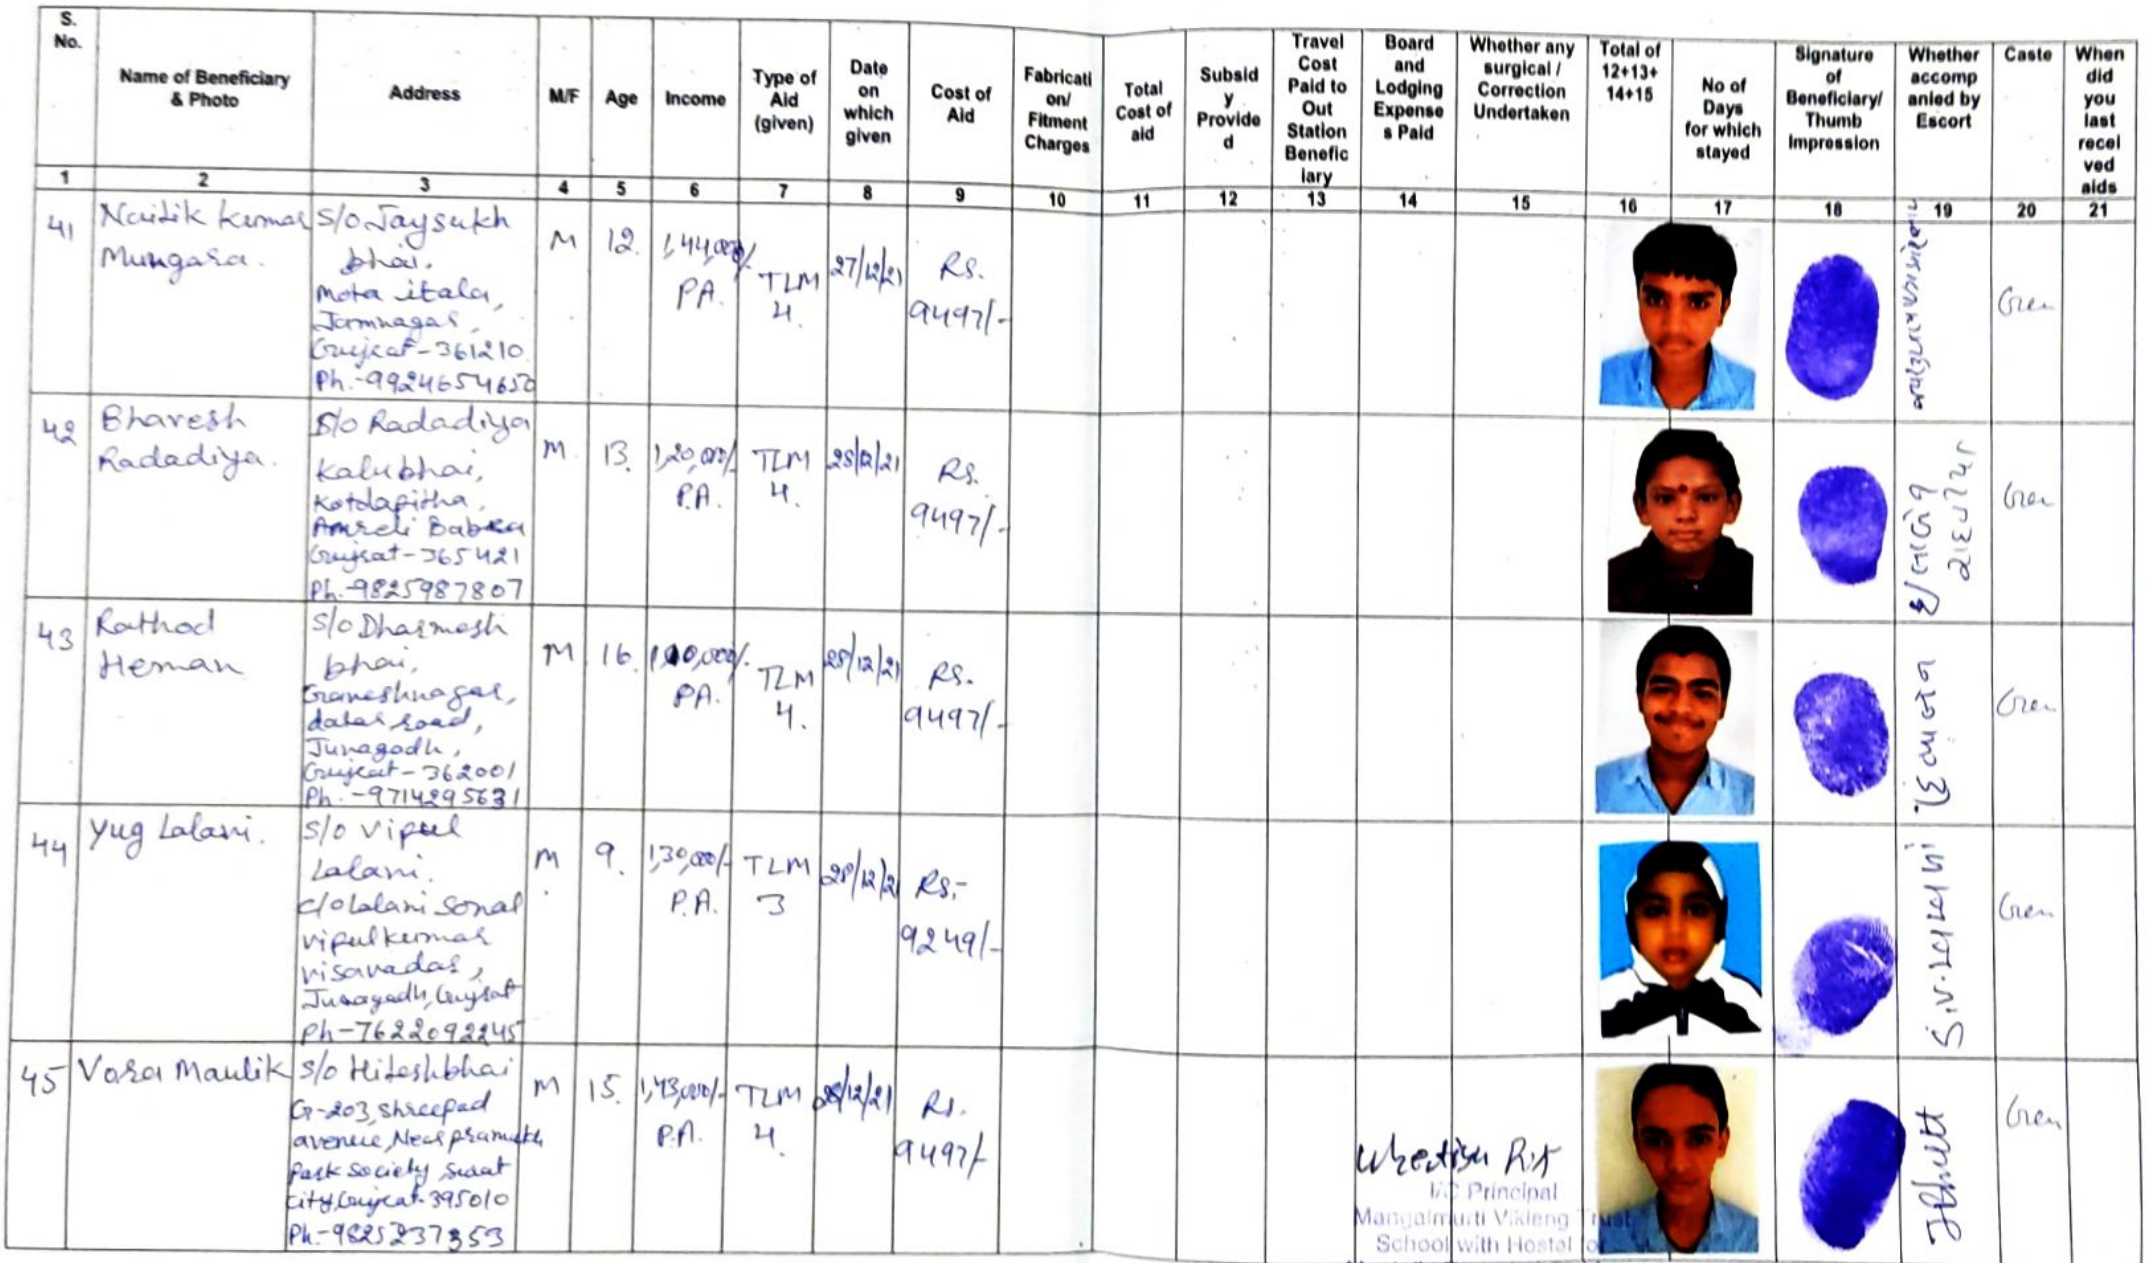 S. No.
Name of Beneficiary & Photo
Address
M/F
Age
Income
Type of Aid (given)
Date on which given
Cost of Aid
Fabricati on/ Fitment Charges
Total Cost of aid
Subsid y Provide d
Travel Cost Paid to Out Station Benefic iary
Board and Lodging Expense s Paid
Whether any surgical / Correction Undertaken
Total of 12+13+ 14+15
No of Days for which stayed
Signature of Beneficiary/ Thumb Impression
Whether accomp anied by Escort
Caste
When did you last recei ved aids
1 2 3 4 5 6 7 8 9 10 11 12 13 14 15 16 17 18 19 20 21
41
Naitik Kumar
Mungara.
S/o Jaysukh
bhai,
Mota itala,
Jamnagar,
Gujrat-361210
Ph.-9924654650
M
12.
1,44,000/-
PA.
TLM
4.
27/12/21
Rs.
9497/-
Gen
42
Bhavesh
Radadiya.
S/o Radadiya
Kalubhai,
Kotdapitha,
Amreli Babra
Gujrat-365421
Ph.-9825987807
M
13.
1,20,000/-
P.A.
TLM
4.
28/12/21
Rs.
9497/-
Gen
43
Rathod
Heman
S/o Dharmesh
bhai,
Ganeshnagar,
datar road,
Junagadh,
Gujrat-362001
Ph.-9714295631
M
16
PA.
TLM
4.
28/12/21
Rs.
9497/-
Gen
44
Yug Lalani.
S/o Vipul
Lalani.
c/o Lalani Sonal
vipulkumar
visavadar,
Junagadh, Gujrat
Ph-7622092245
M
9.
1,30,000/-
P.A.
TLM
3
28/12/21
Rs,-
9249/-
S.V. લાલાણી
Gen
45
Vasa Maulik
S/o Hiteshbhai
G-203, shreepad
avenue, Near pramukh
Park society surat
city, Gujrat-395010
Ph.-9825237353
M
15.
1,43,000/-
P.A.
TLM
4.
28/12/21
Rs.
9497/-
Gen
I/C Principal
Mangalmurti Viklang Trust
School with Hostel for